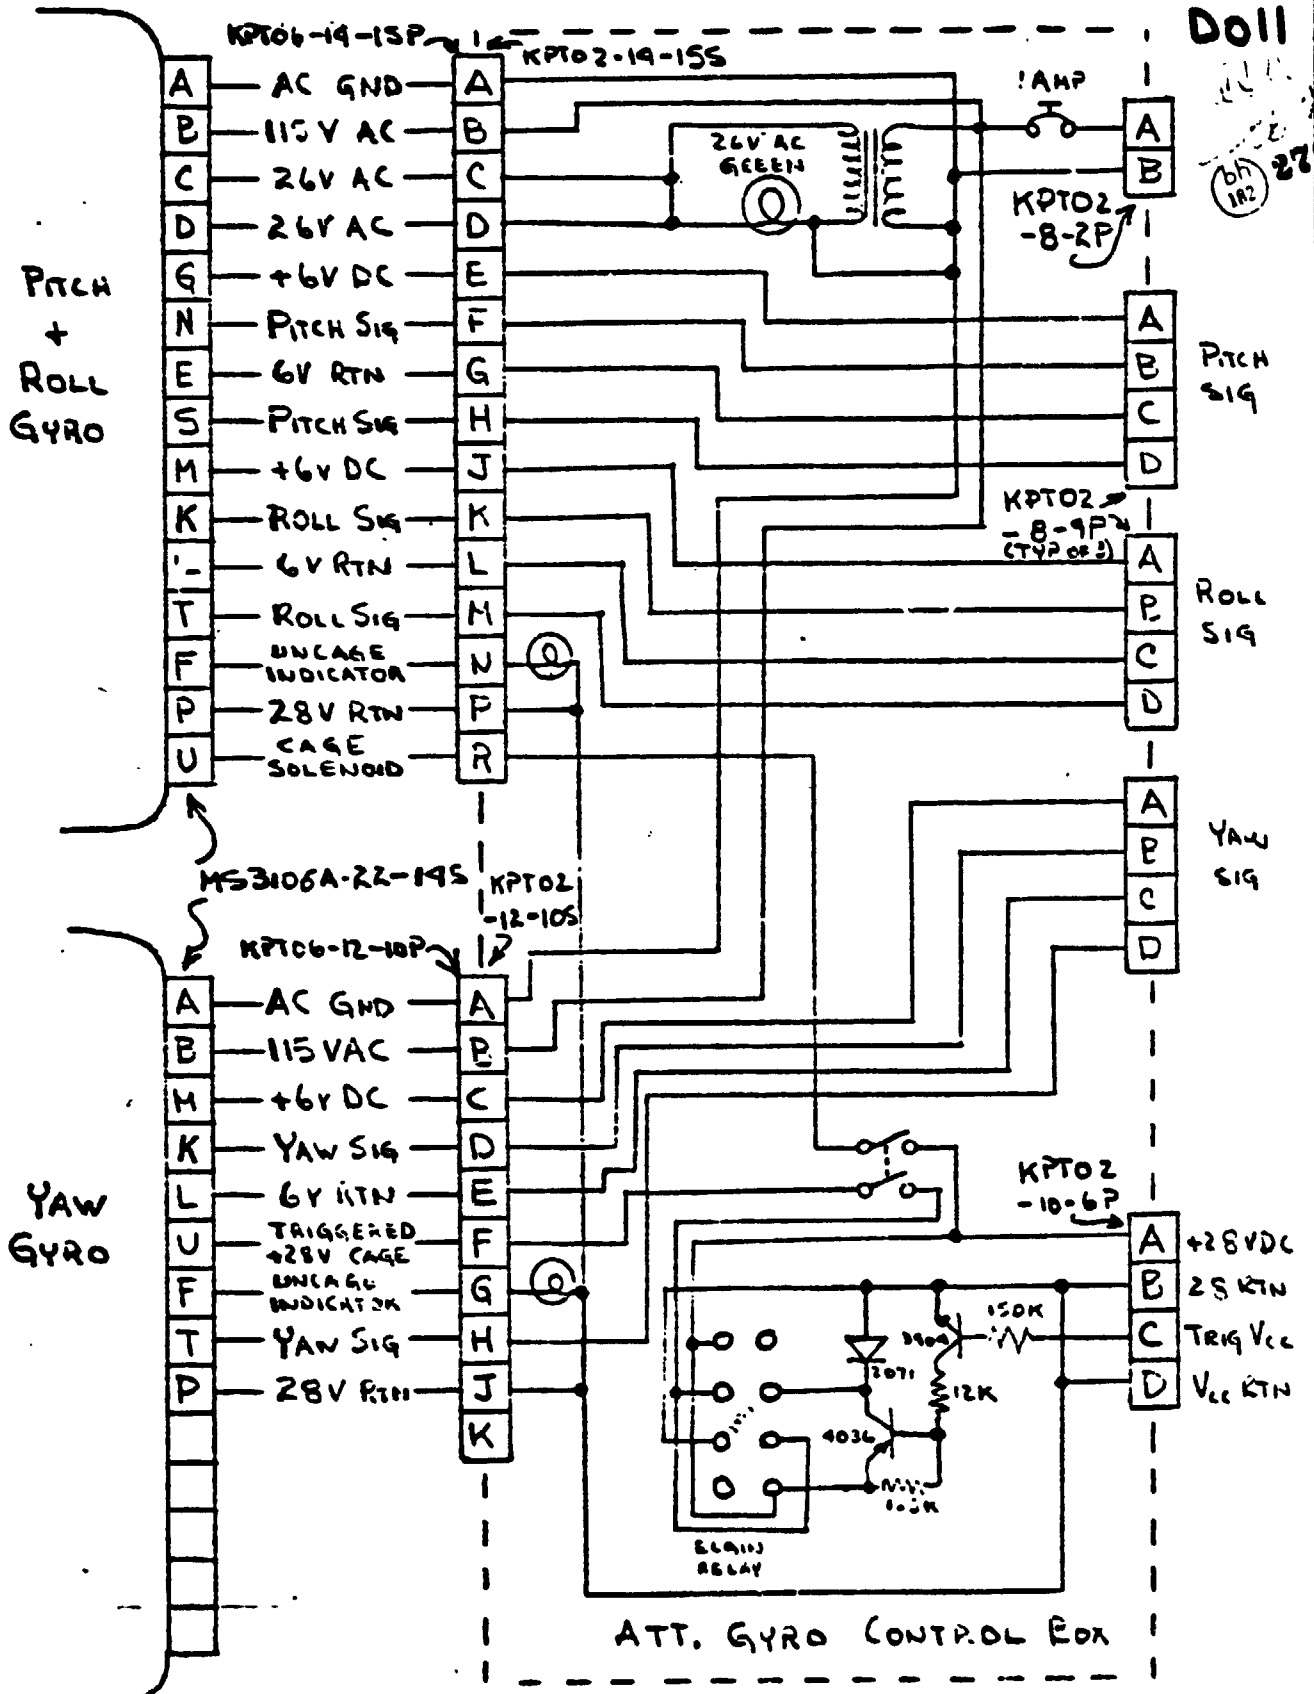 Doll
KPT06-14-15P
KPT02-14-15S
1 AMP
27
bh
1A2
26V AC
GREEN
KPT02
-8-2P
A
B
PITCH
+
ROLL
GYRO
A AC GND A
B 115V AC B
C 26V AC C
D 26V AC D
G +6V DC E
N PITCH SIG F
E 6V RTN G
S PITCH SIG H
M +6V DC J
K ROLL SIG K
L 6V RTN L
T ROLL SIG M
F UNCAGE INDICATOR N
P 28V RTN P
U CAGE SOLENOID R
A
B
C
D
PITCH
SIG
KPT02
-8-4P
(TYP OF 3)
A
B
C
D
ROLL
SIG
A
B
C
D
YAW
SIG
MS3106A-22-14S
KPT02
-12-10S
KPT06-12-10P
YAW
GYRO
A AC GND A
B 115 VAC B
M +6V DC C
K YAW SIG D
L 6V RTN E
U TRIGGERED +28V CAGE F
F UNCAGE INDICATOR G
T YAW SIG H
P 28V RTN J
K
KPT02
-10-6P
A +28VDC
B 28 RTN
C TRIG Vcc
D Vcc RTN
150K
3904
2071
12K
4036
ELGIN
RELAY
ATT. GYRO CONTROL BOX